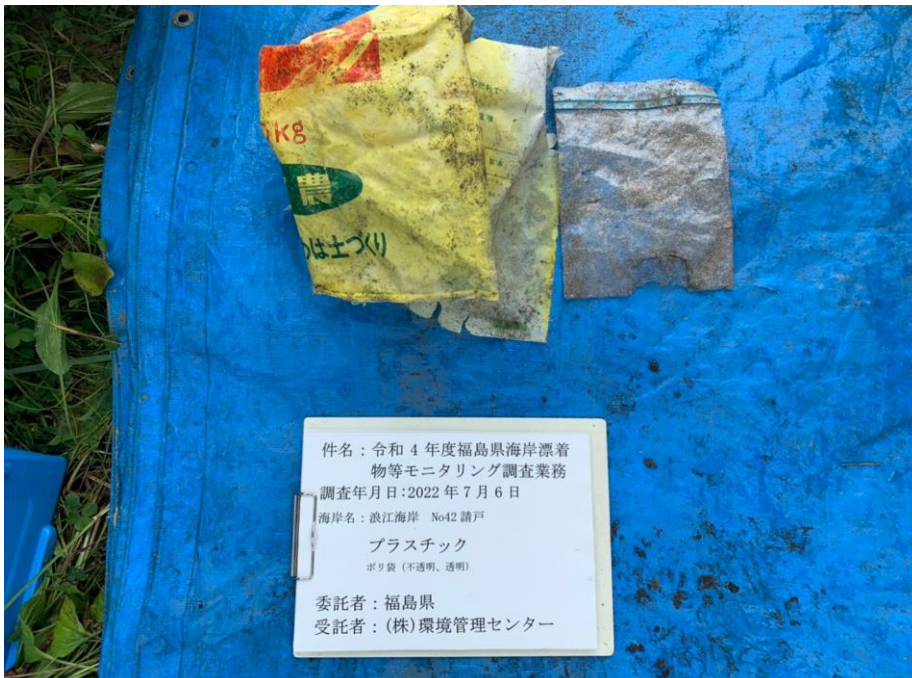 kg
農
は土づくり
件名：令和 4 年度福島県海岸漂着
物等モニタリング調査業務
調査年月日：2022 年 7 月 6 日
海岸名：浪江海岸 No42 請戸
プラスチック
ポリ袋（不透明、透明）
委託者：福島県
受託者：(株)環境管理センター